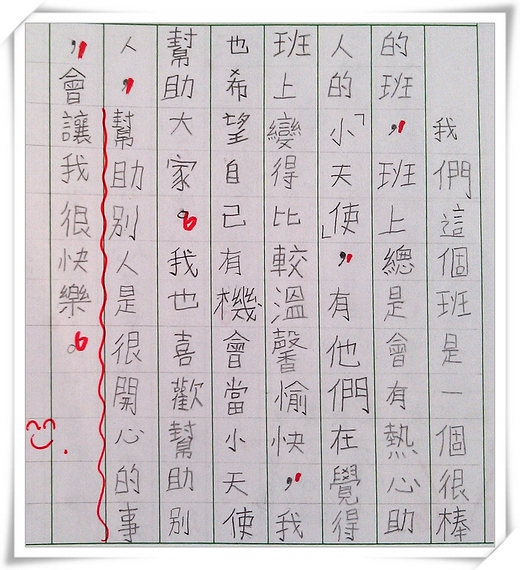 我們這個班是一個很棒
的班，班上總是會有熱心助
人的「小天使」，有他們在覺得
班上變得比較溫馨愉快，我
也希望自己有機會當小天使
幫助大家。我也喜歡幫助別
人，幫助別人是很開心的事
，會讓我很快樂。